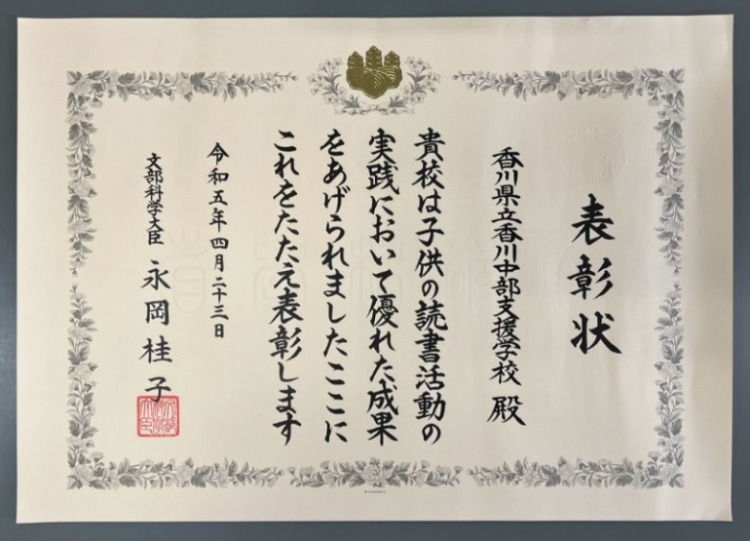 表彰状
香川県立香川中部支援学校 殿
貴校は子供の読書活動の
実践において優れた成果
をあげられましたここに
これをたたえ表彰します
令和五年四月二十三日
文部科学大臣 永岡桂子